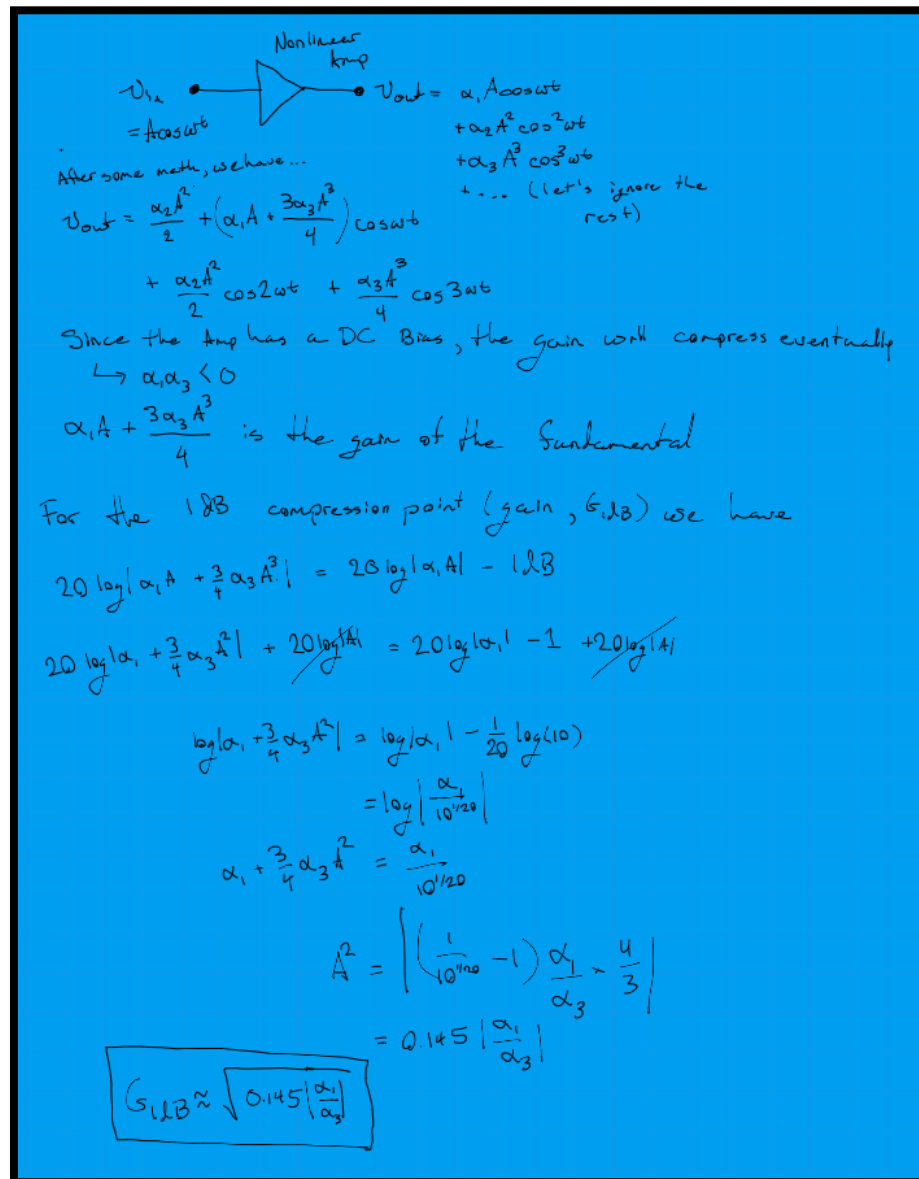 Nonlinear
Amp
V_in
= Acosωt
V_out = α₁Acosωt
+α₂A² cos²ωt
+α₃A³ cos³ωt
+ ... (let's ignore the
rest)
After some math, we have...
V_out = α₂A²/2 + (α₁A + 3α₃A³/4) cosωt
+ α₂A²/2 cos2ωt + α₃A³/4 cos3ωt
Since the Amp has a DC Bias, the gain will compress eventually
↳ α₁α₃ < 0
α₁A + 3α₃A³/4 is the gain of the fundamental
For the 1dB compression point (gain, G1dB) we have
20 log|α₁A + 3/4 α₃A³| = 20 log|α₁A| - 1dB
20 log|α₁ + 3/4 α₃A²| + 20log|A| = 20log|α₁| - 1 + 20log|A|
log|α₁ + 3/4 α₃A²| = log|α₁| - 1/20 log(10)
= log|α₁/10^(1/20)|
α₁ + 3/4 α₃A² = α₁/10^(1/20)
A² = |(1/10^(1/20) - 1) α₁/α₃ × 4/3|
= 0.145 |α₁/α₃|
G1dB ≈ √(0.145|α₁/α₃|)